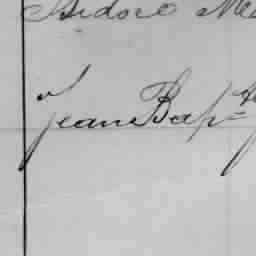 Isidore Me
Jean Bapte